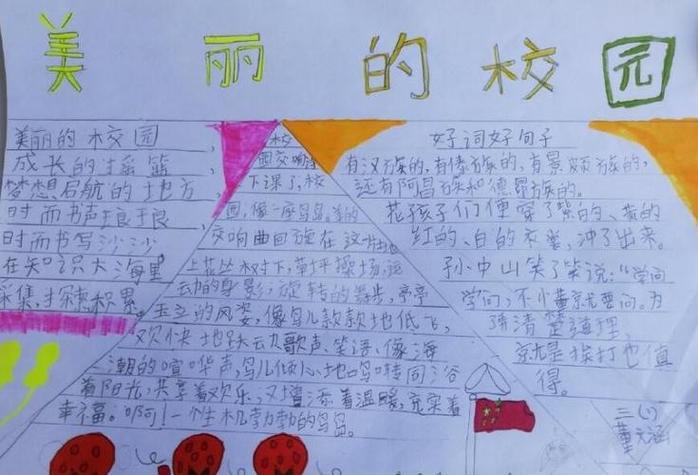 美丽的校园
美丽的校园，
成长的摇篮，
梦想启航的地方，
时而书声琅琅
时而书写沙沙
在知识大海里
采集，探索积累。
校
园交响曲
下课了，校
园，像一座鸟岛。美的
交响曲回旋在这片土地
上花丛树下，草坪操场，运
动的身影，旋转的舞步，亭亭
玉立的风姿，像鸟儿款款地低飞，
欢快地跃
歌声、笑语、像海
潮的喧哗声，鸟儿倾心地鸣啭同浴
着阳光，共享着欢乐，又增添着温暖，充实着
幸福。啊！一个生机勃勃的鸟岛。
好词好句子
有汉族的，有傣族的，有景颇族的，
还有阿昌族和德昂族的。
花孩子们便穿了紫的、黄的
红的、白的衣裳，冲了出来。
孙中山笑了笑说：“学问
学问，不懂就要问。为
弄清楚道理，
就是挨打也值
得。
三(1)
董元涵